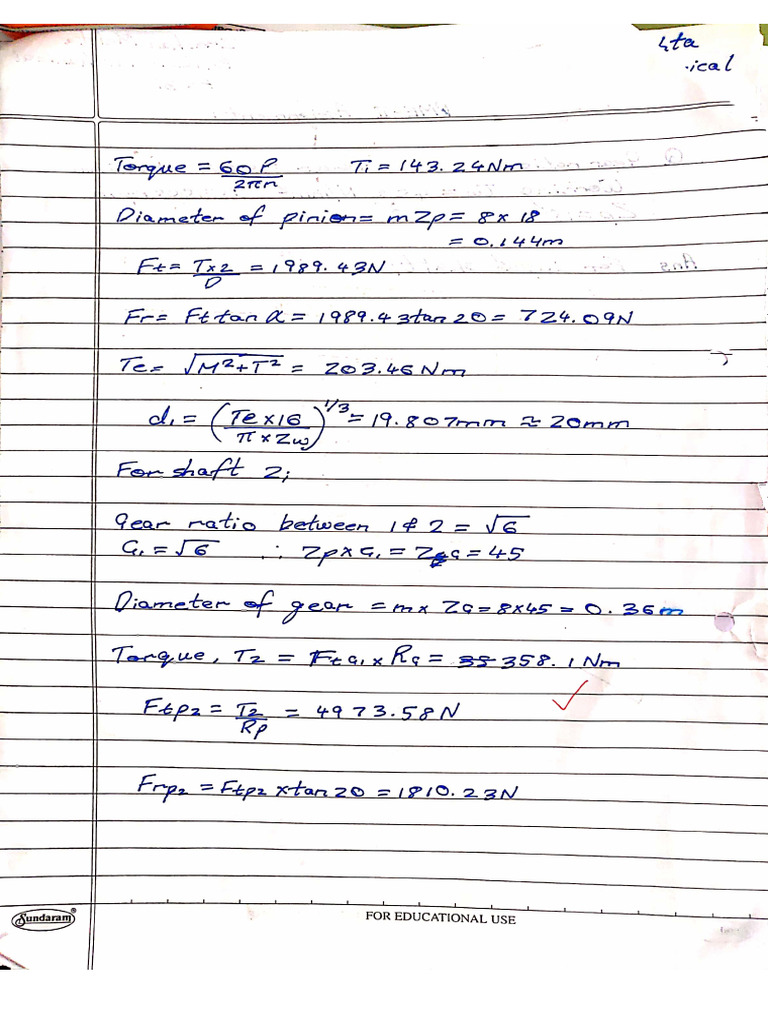 ta
ical
Torque = 60P/2πn T1 = 143.24Nm
Diameter of pinion = mZp = 8 × 18
= 0.144m
Ft = T×2/D = 1989.43N
Fr = Ft tan α = 1989.43tan20 = 724.09N
Te = √M²+T² = 203.46Nm
d1 = (Te×16/π×Zw)^1/3 = 19.807mm ≈ 20mm
For shaft 2;
gear ratio between 1 & 2 = √6
G1 = √6 ∴ Zp×G1 = ZG = 45
Diameter of gear = m× ZG = 8×45 = 0.36m
Torque, T2 = FtG1 × RG = 358.1Nm
Ftp2 = T2/Rp = 4973.58N
Frp2 = Ftp2 × tan20 = 1810.23N
Sundaram®
FOR EDUCATIONAL USE